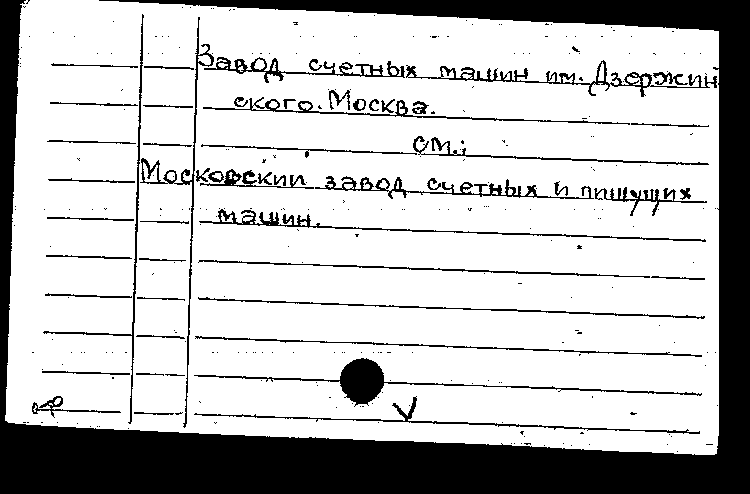 Завод счетных машин им. Дзержин
ского. Москва.
см.:
Московский завод счетных и пишущих
машин.